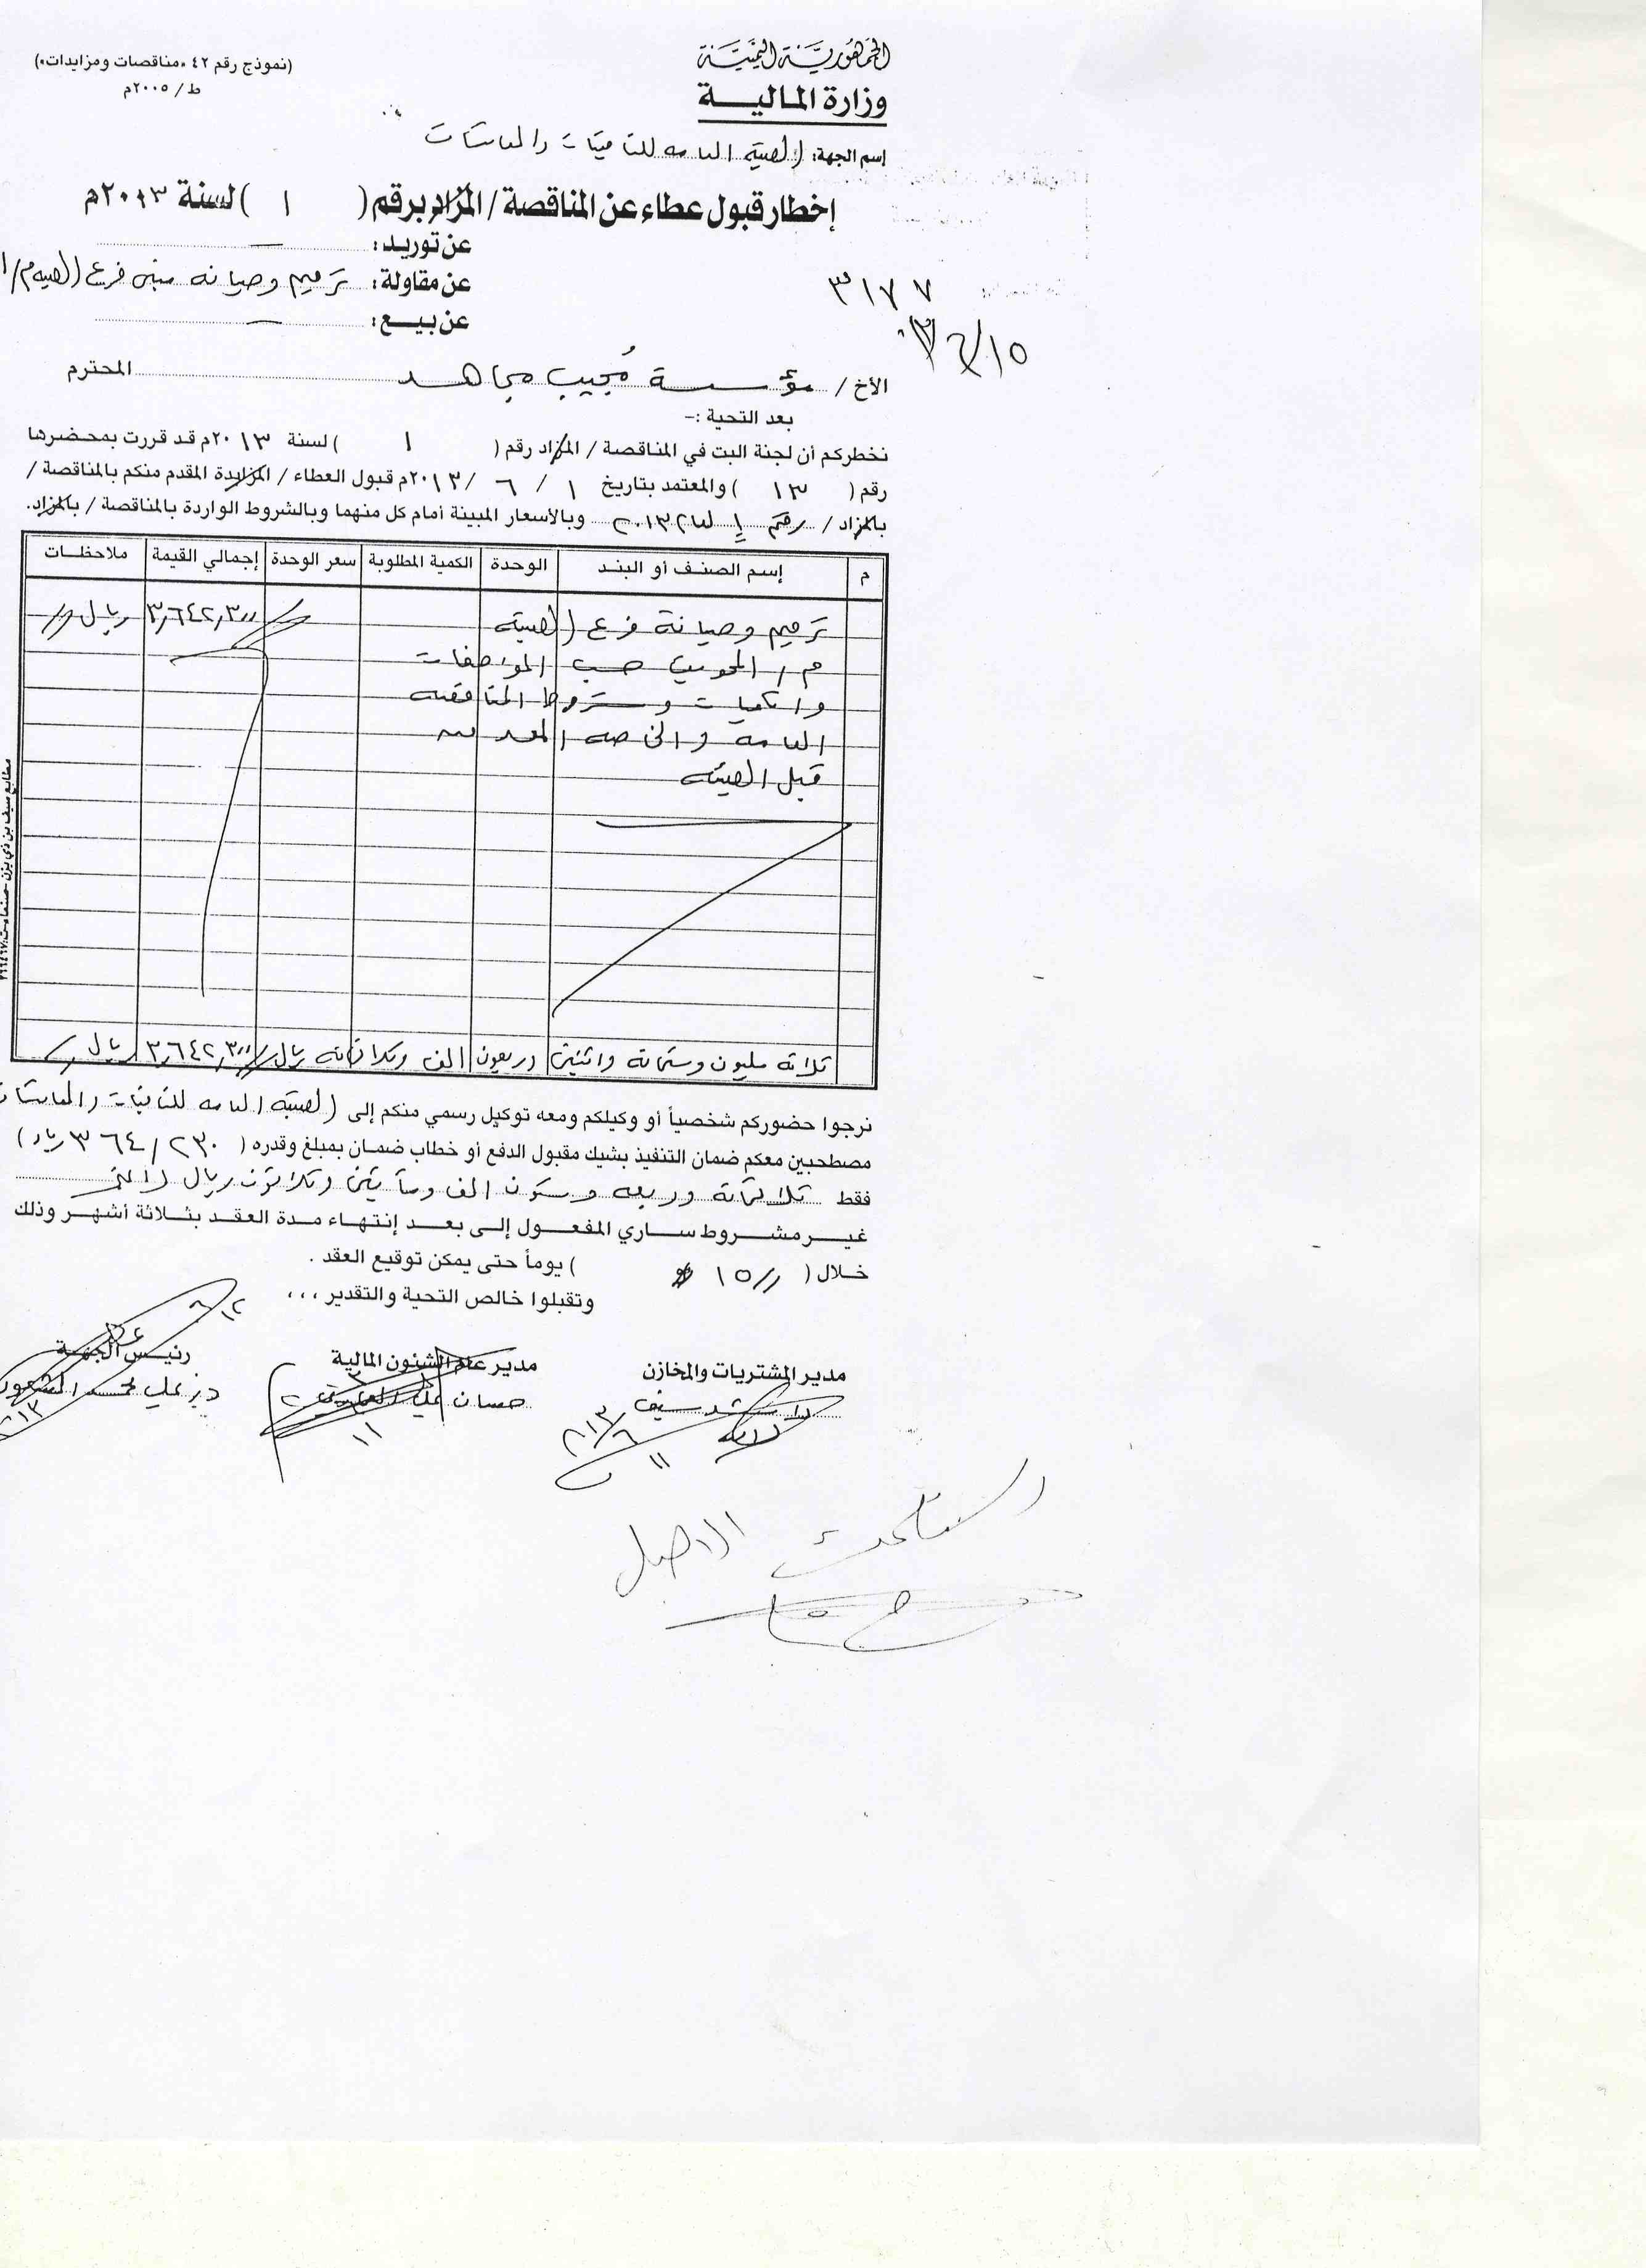 (نموذج رقم ٤٢ «مناقصات ومزايدات»)
ط / ٢٠٠٥م
الجمهورية اليمنية
وزارة المالية
إسم الجهة: الهيئة العامه للتأمينات والمعاشات
إخطار قبول عطاء عن المناقصة / المزاد برقم ( ١ ) لسنة ٢٠١٣م
عن توريد: —
عن مقاولة: ترميم وصيانه مبنى فرع الهيئه م/ا
عن بيع: —
٣١٧٧
١٥/٦/١٣
الأخ / مؤسسة مُجيب مجاهد المحترم
بعد التحية :-
نخطركم أن لجنة البت في المناقصة / المزاد رقم ( ١ ) لسنة ٢٠١٣م قد قررت بمحضرها
رقم ( ١٣ ) والمعتمد بتاريخ ١ / ٦ / ٢٠١٣م قبول العطاء / المزايدة المقدم منكم بالمناقصة /
بالمزاد / رقم ١ لسنة ٢٠١٣ وبالأسعار المبينة أمام كل منهما وبالشروط الواردة بالمناقصة / بالمزاد.
م إسم الصنف أو البند الوحدة الكمية المطلوبة سعر الوحدة إجمالي القيمة ملاحظات
ترميم وصيانة فرع الهيئة ٣,٦٤٢,٣٠٠ ريال
م/ المحويت حسب المواصفات
والكميات وشروط المناقصه
العامه والخاصه المعد من
قبل الهيئه
ثلاثه مليون وستمائة واثنين واربعون الف وثلاثمائه ريال ٣,٦٤٢,٣٠٠ ريال
نرجوا حضوركم شخصياً أو وكيلكم ومعه توكيل رسمي منكم إلى الهيئة العامه للتأمينات والمعاشات
مصطحبين معكم ضمان التنفيذ بشيك مقبول الدفع أو خطاب ضمان بمبلغ وقدره ( ٣٦٤/٢٣٠ ريال )
فقط ثلاثمائة واربعه وستون الف ومأتين وثلاثون ريال
غير مشروط ساري المفعول إلى بعد إنتهاء مدة العقد بثلاثة أشهر وذلك
خلال ( ١٥ ) يوماً حتى يمكن توقيع العقد .
وتقبلوا خالص التحية والتقدير ،،،
مدير المشتريات والمخازن
مدير عام الشئون المالية
رئيس الجهة
حسان علي
د/ علي محمد
استلمت الاصل
مطابع سيف بن ذي يزن - صنعاء